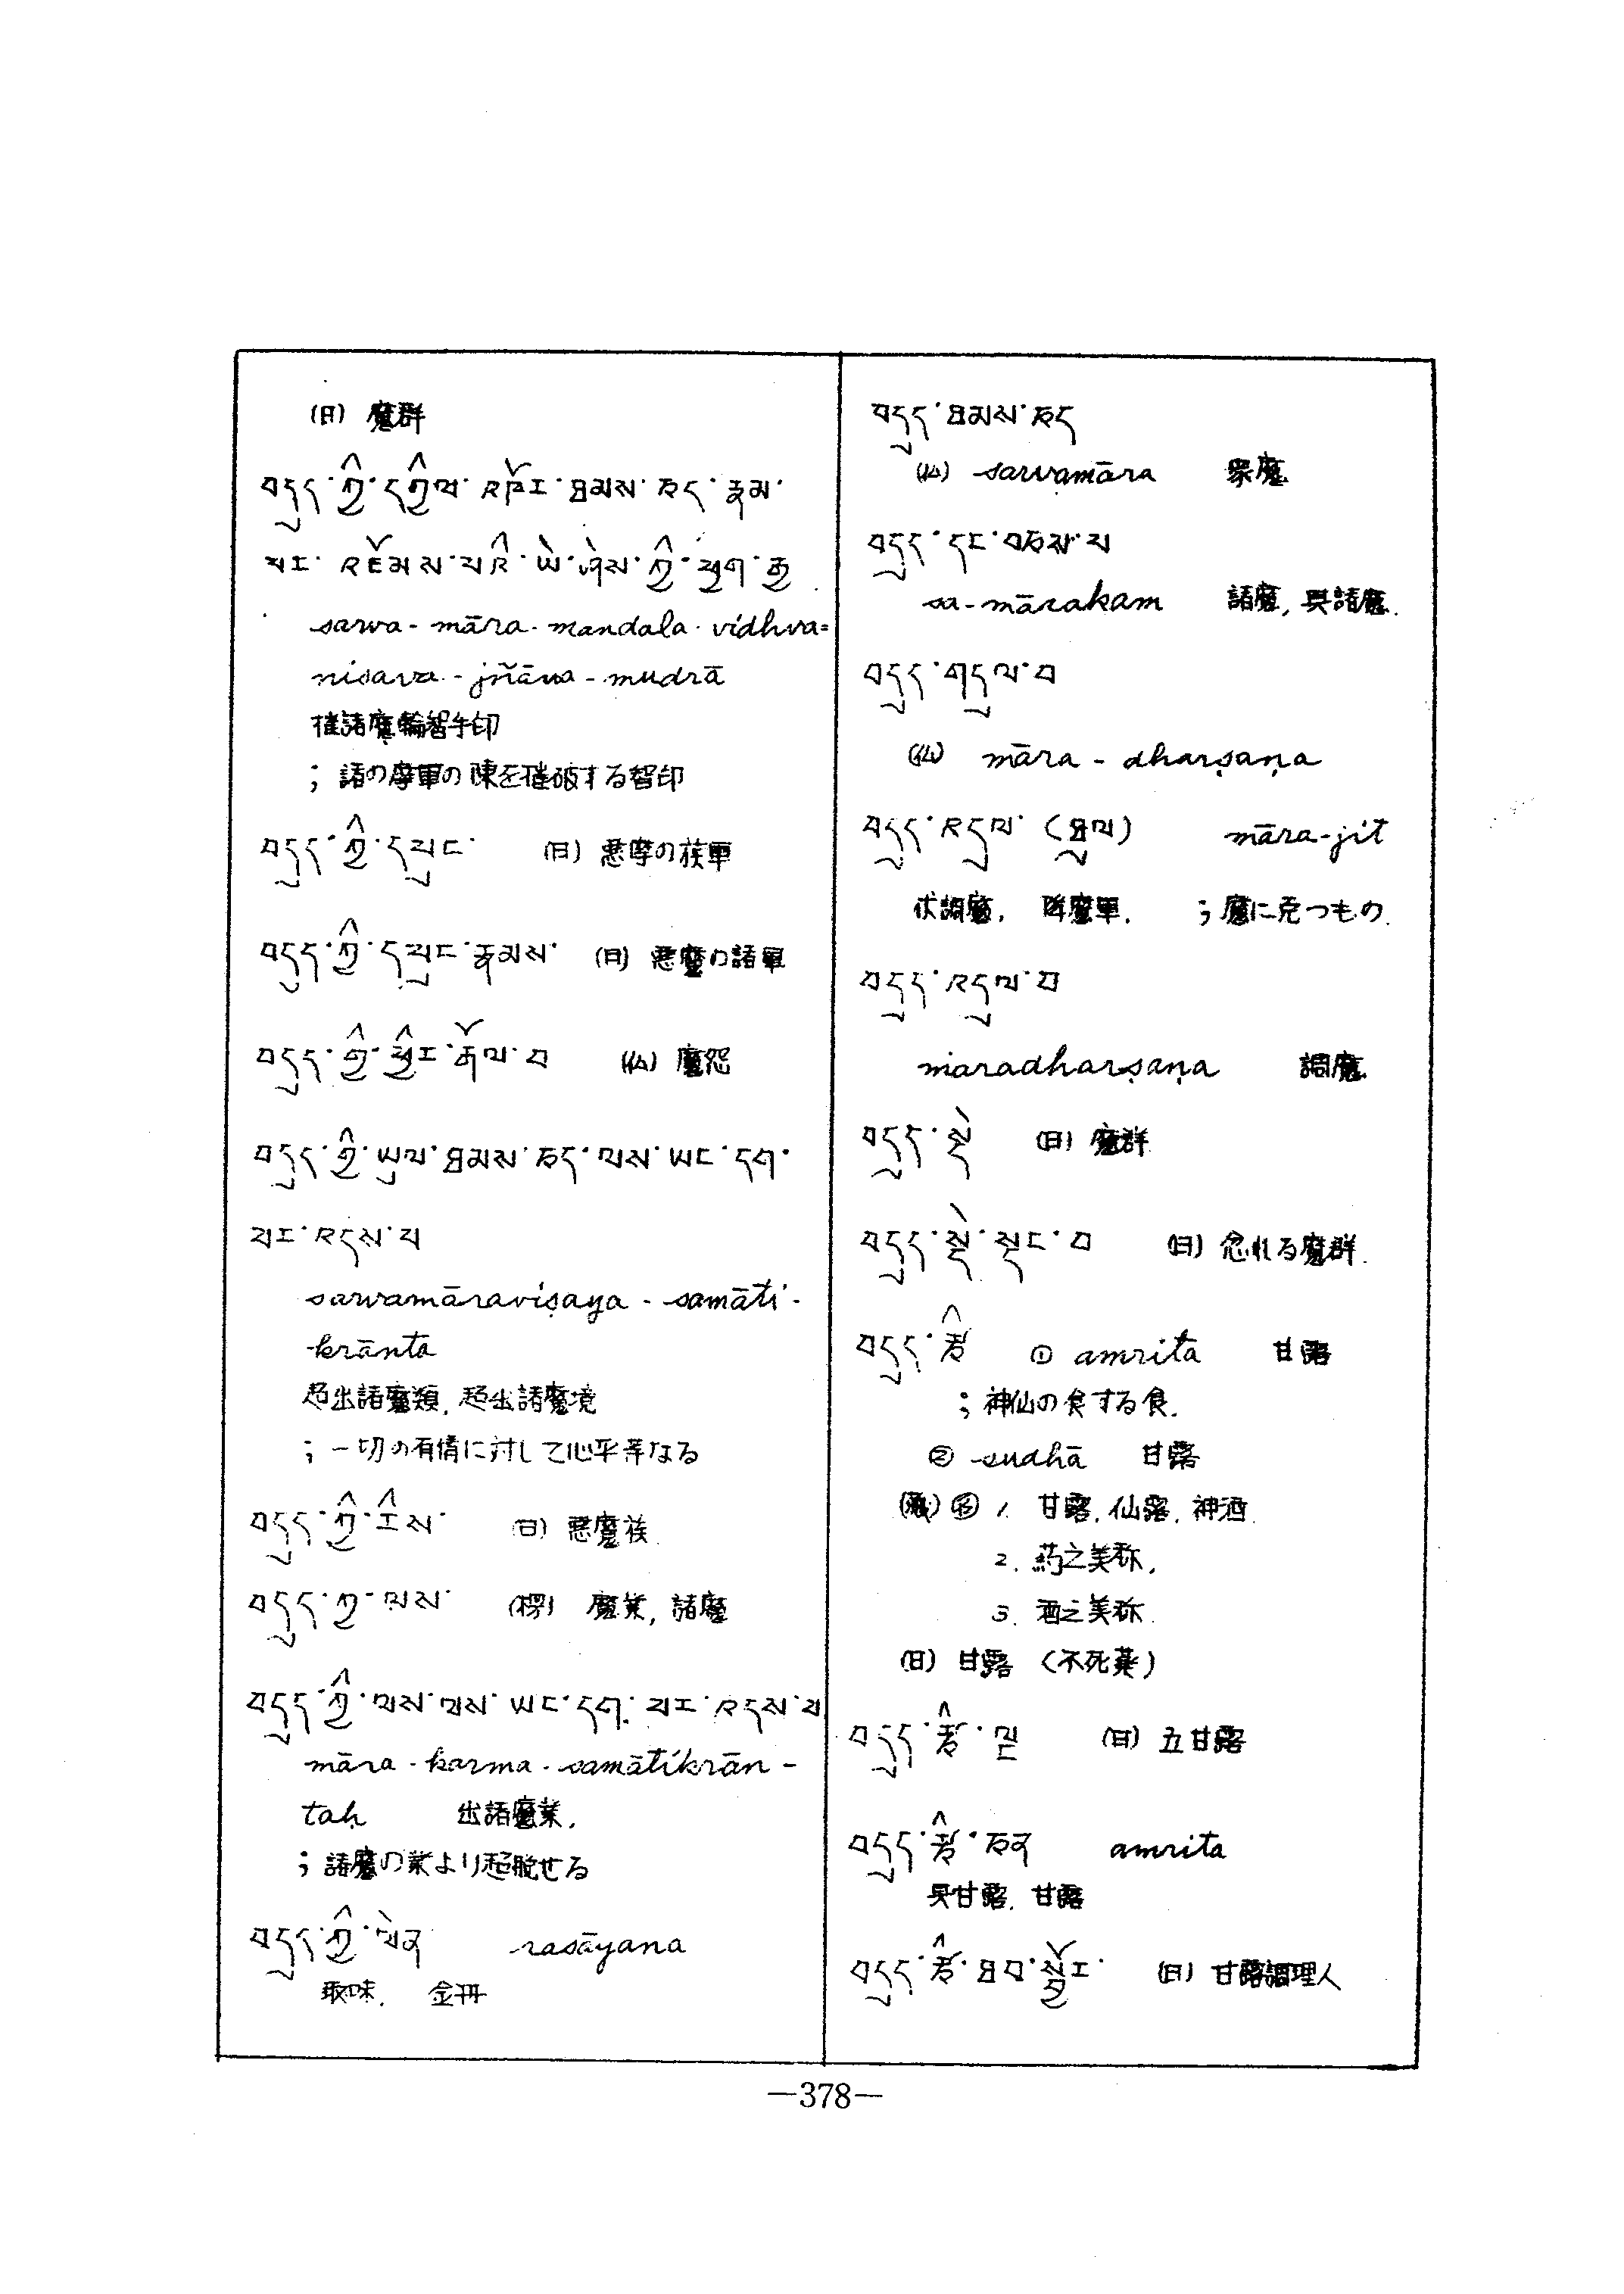 (日) 魔群
བདུད་ཀྱི་དཀྱིལ་འཁོར་ཐམས་ཅད་རྣམ་
པར་འཇོམས་པའི་ཡེ་ཤེས་ཀྱི་ཕྱག་རྒྱ
sarva-māra-mandala-vidhva=
nisara-jñāna-mudrā
摧諸魔輪智手印
; 諸の摩軍の陳を摧破する智印
བདུད་ཀྱི་དཔུང་ (日) 悪摩の族軍
བདུད་ཀྱི་དཔུང་རྣམས་ (日) 悪魔の諸軍
བདུད་ཀྱི་ཕྱིར་རྒོལ་བ (仏) 魔怨
བདུད་ཀྱི་ཡུལ་ཐམས་ཅད་ལས་ཡང་དག་
པར་འདས་པ
sarvamāraviṣaya-samāti-
-krānta
超出諸魔類, 超出諸魔境
; 一切の有情に対して心平等なる
བདུད་ཀྱི་རིས་ (日) 悪魔族
བདུད་ཀྱི་ལས་ (楞) 魔業, 諸魔
བདུད་ཀྱི་ལས་ལས་ཡང་དག་པར་འདས་པ
māra-karma-samātikrān-
taḥ 出諸魔業.
; 諸魔の業より超脱せる
བདུད་ཀྱི་ལེན rasāyana
取味. 金丹
བདུད་ཐམས་ཅད
(仏) sarvamāra 衆魔
བདུད་དང་བཅས་པ
sa-mārakam 諸魔, 與諸魔.
བདུད་གདུལ་བ
(仏) māra-dharṣaṇa
བདུད་འདུལ་(ཐུལ) māra-jit
伏調魔, 降魔軍. ; 魔に克つもの.
བདུད་འདུལ་བ
maradharṣaṇa 調魔
བདུད་སྡེ (日) 魔群
བདུད་སྡེ་སྡང་བ (日) 忿れる魔群.
བདུད་རྩི ① amrita 甘露
; 神仙の食する食.
② sudhā 甘露
(蔵) 1. 甘露, 仙露, 神酒.
2. 葯之美称.
3. 酒之美称.
(日) 甘露 (不死薬)
བདུད་རྩི་ལྔ (日) 五甘露
བདུད་རྩི་ཅན amrita
具甘露. 甘露
བདུད་རྩི་ཐབ་སྦྱོར་ (日) 甘露調理人
—378—